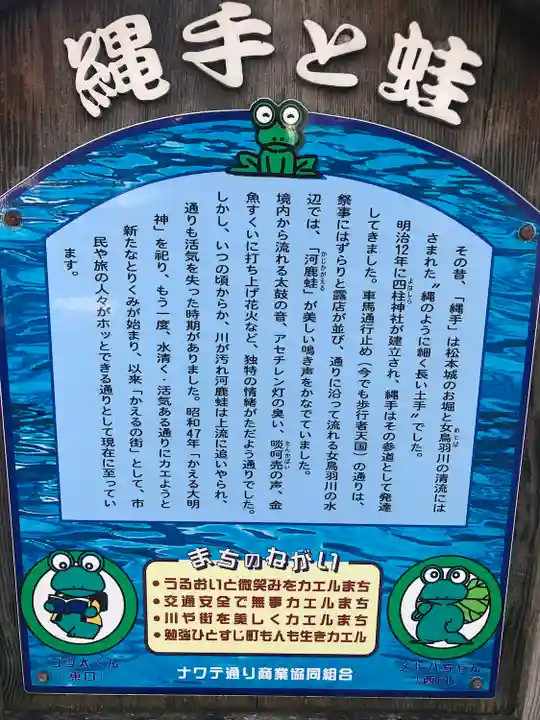 縄手と蛙
その昔、「縄手」は松本城のお堀と女鳥羽川の清流には
さまれた〝縄のように細く長い土手〟でした。
明治12年に四柱神社が建立され、縄手はその参道として発達
してきました。車馬通行止め（今でも歩行者天国）の通りは、
祭事にはずらりと露店が並び、通りに沿って流れる女鳥羽川の水
辺では、「河鹿蛙」が美しい鳴き声をかなでていました。
境内から流れる太鼓の音、アセチレン灯の臭い、啖呵売の声、金
魚すくいに打ち上げ花火など、独特の情緒がただよう通りでした。
しかし、いつの頃からか、川が汚れ河鹿蛙は上流に追いやられ、
通りも活気を失った時期がありました。昭和47年「かえる大明
神」を祀り、もう一度、水清く・活気ある通りにカエようと
新たなとりくみが始まり、以来「かえるの街」として、市
民や旅の人々がホッとできる通りとして現在に至ってい
ます。
まちのねがい
・うるおいと微笑みをカエルまち
・交通安全で無事カエルまち
・川や街を美しくカエルまち
・勉強ひとすじ町も人も生きカエル
（東口）
（西口）
ナワテ通り商業協同組合